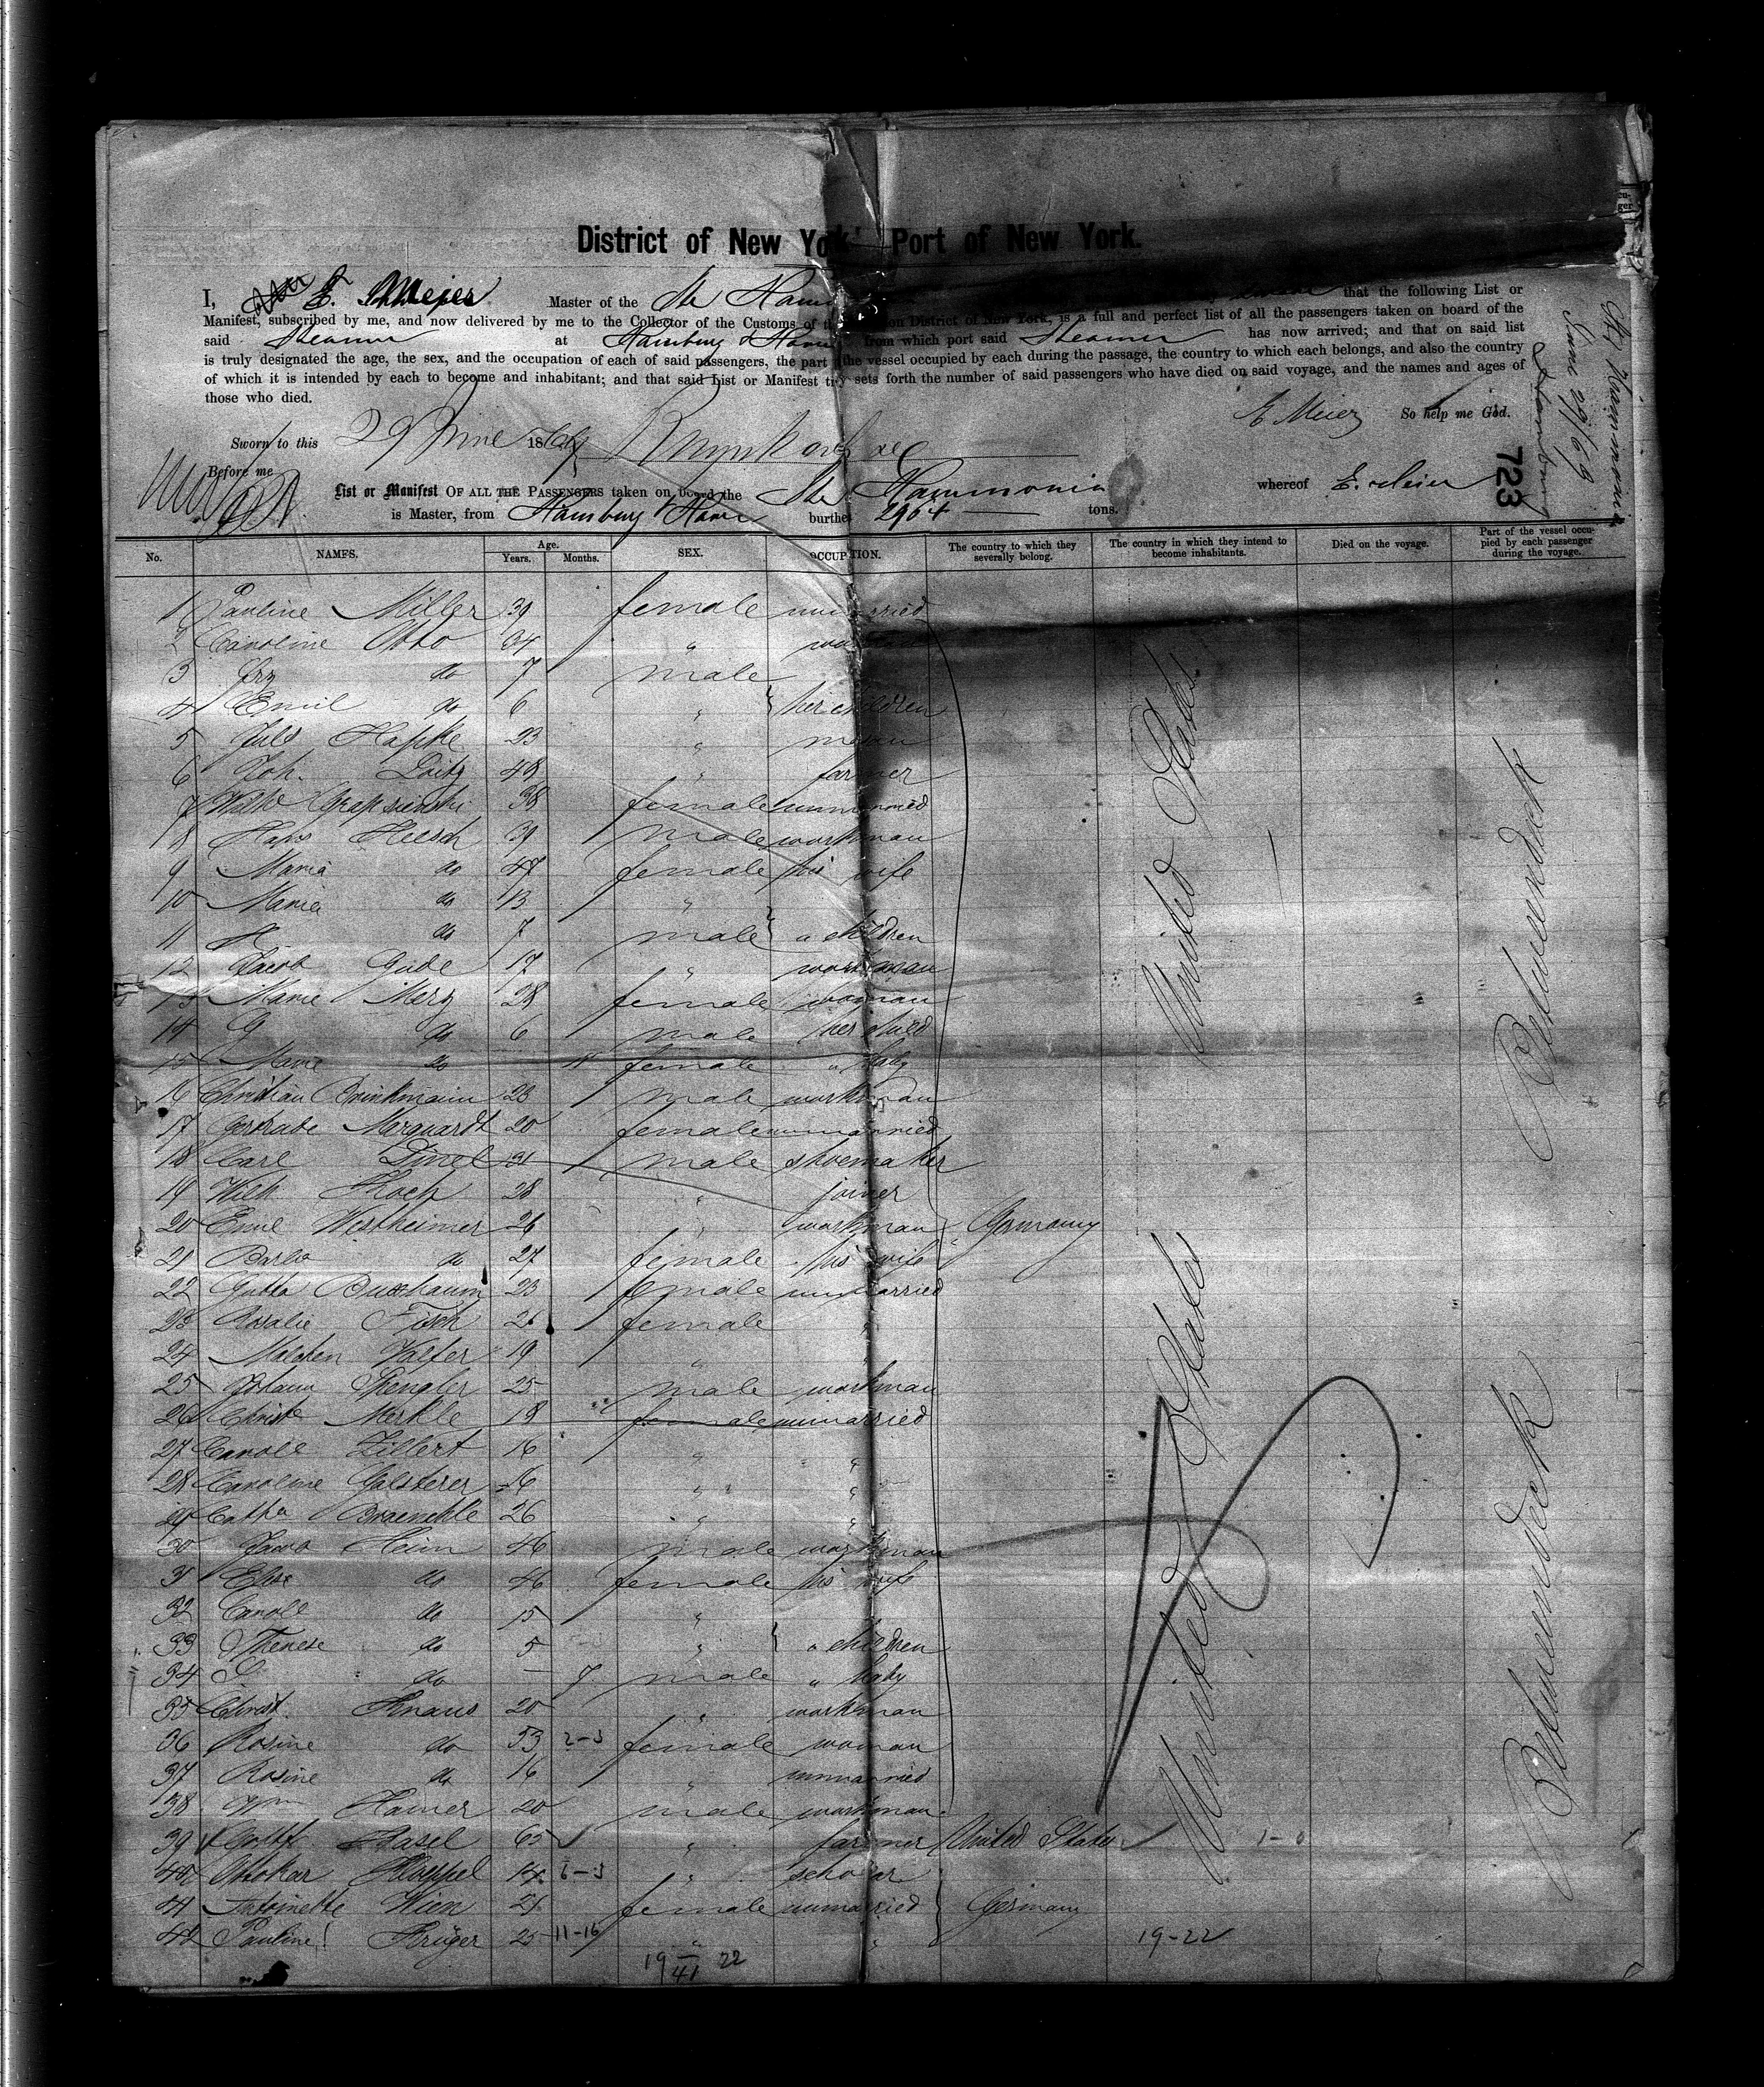 District of New York Port of New York.
I, E. Meier Master of the Str Ham that the following List or
Manifest, subscribed by me, and now delivered by me to the Collector of the Customs of the on District of New York, is a full and perfect list of all the passengers taken on board of the
said Steamer at Hamburg & Havre from which port said Steamer has now arrived; and that on said list
is truly designated the age, the sex, and the occupation of each of said passengers, the part the vessel occupied by each during the passage, the country to which each belongs, and also the country
of which it is intended by each to become and inhabitant; and that said List or Manifest sets forth the number of said passengers who have died on said voyage, and the names and ages of
those who died.
E Meier So help me God.
Sworn to this 29 June 1869
Before me
List or Manifest OF ALL THE PASSENGERS taken on board the Str Hammonia whereof E. Meier
is Master, from Hamburg Havre burthen 2964 tons.
723
June 29/69
No. NAMES. Age. Years. Months. SEX. OCCUPATION. The country to which they severally belong. The country in which they intend to become inhabitants. Died on the voyage. Part of the vessel occupied by each passenger during the voyage.
1 Pauline Miller 39 female unmarried
2 Caroline Otto 34 " woman
3 do 7 male
4 Emil do 6 " her children
5 Juls Hapke 23 "
6 Joh. 48 " farmer
7 38 female unmarried
8 Hans Heesch 39 male workman
9 Maria do 47 female his wife
10 Maria do 13 "
11 H do 7 male " children
12 Jacob Gude 17 " workman
13 Marie Merz 28 female woman
14 G do 6 male her child
15 Marie do 11 female " baby
16 Christian Brinkmann 23 male workman
17 Gertrude Marquardt 20 female unmarried
18 Carl 31 male shoemaker
19 Wilh. Koch 28 " joiner
20 Emil Westheimer 26 " workman Germany
21 do 27 female his wife
22 Buxbaum 23 female unmarried
23 Rosalie Fisch 26 female "
24 Malchen 19 " "
25 Johann Spengler 25 male workman
26 Christe Merkle 18 female unmarried
27 Carole Zillert 16 " "
28 Caroline Galsterer 16 " "
29 Cathe 26 " "
30 Jacob Heim 46 male workman
31 Elise do 46 female his wife
32 Carole do 15 "
33 Therese do 5 " " children
34 do - 7 male " baby
35 Christ. Knaus 20 " workman
36 Rosine do 53 female woman
37 Rosine do 16 " unmarried
38 Wm Hamer 20 male workman
39 Gottf. Hasel 65 " farmer United States
40 Ottokar Hoeppel 14 " scholar
41 Antoinette Wien 21 female unmarried Germany
42 Pauline Krüger 25 11-16 " "
19-22
19 22
41
United States
United States
Zwischendeck
Zwischendeck